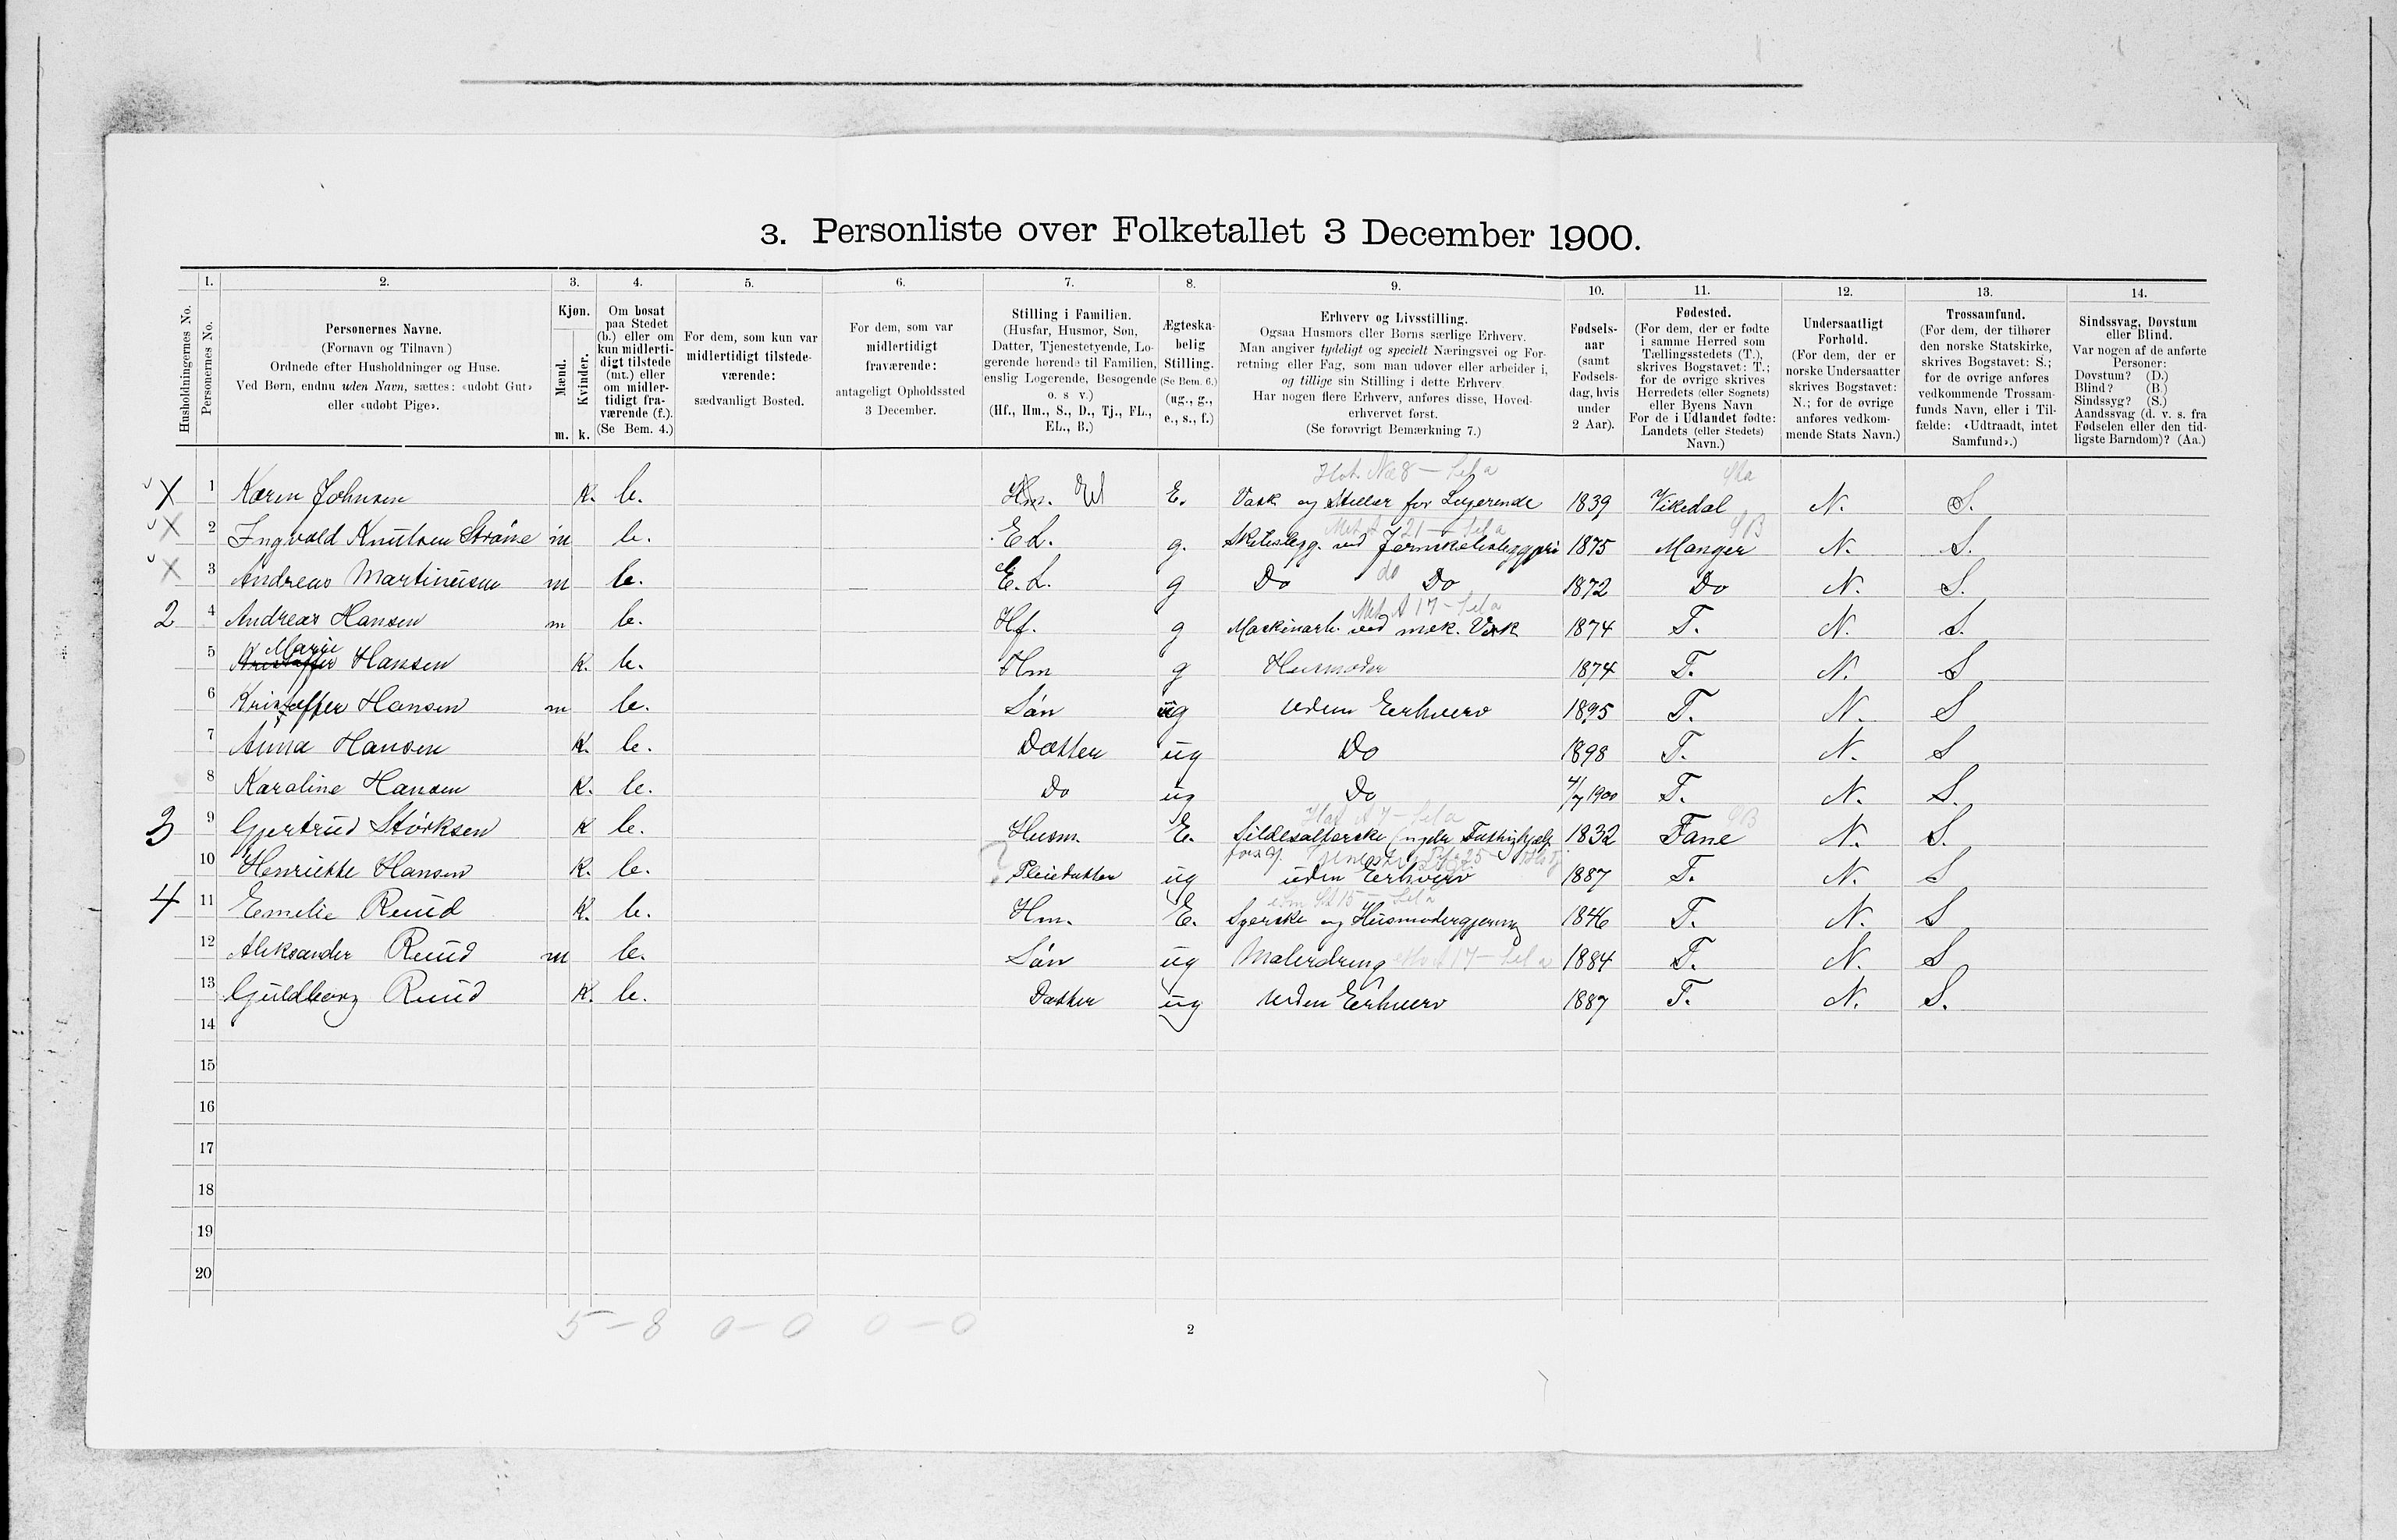 3. Personliste over Folketallet 3 December 1900.
Husholdningernes No.
1. Personernes No.
2. Personernes Navne.
(Fornavn og Tilnavn)
Ordnede efter Husholdninger og Huse.
Ved Børn, endnu uden Navn, sættes: «udøbt Gut»
eller «udøbt Pige».
3. Kjøn.
Mænd. m.
Kvinder. k.
4. Om bosat
paa Stedet
(b.) eller om
kun midlerti-
digt tilstede
(mt.) eller
om midler-
tidigt fra-
værende (f.).
(Se Bem. 4.)
5. For dem, som kun var
midlertidigt tilstede-
værende:
sædvanligt Bosted.
6. For dem, som var
midlertidigt
fraværende:
antageligt Opholdssted
3 December.
7. Stilling i Familien.
(Husfar, Husmor, Søn,
Datter, Tjenestetyende, Lo-
gerende hørende til Familien,
enslig Logerende, Besøgende
o. s v.)
(Hf., Hm., S., D., Tj., FL.,
EL., B.)
8. Ægteska-
belig
Stilling.
(Se Bem. 6.)
(ug., g.,
e., s., f.)
9. Erhverv og Livsstilling.
Ogsaa Husmors eller Børns særlige Erhverv.
Man angiver tydeligt og specielt Næringsvei og For-
retning eller Fag, som man udøver eller arbeider i,
og tillige sin Stilling i dette Erhverv.
Har nogen flere Erhverv, anføres disse, Hoved-
erhvervet først.
(Se forøvrigt Bemærkning 7.)
10. Fødsels-
aar
(samt
Fødsels-
dag, hvis
under
2 Aar).
11. Fødested.
(For dem, der er fødte
i samme Herred som
Tællingsstedets (T.),
skrives Bogstavet: T.;
for de øvrige skrives
Herredets (eller Sognets)
eller Byens Navn
For de i Udlandet fødte:
Landets (eller Stedets)
Navn.)
12. Undersaatligt
Forhold.
(For dem, der er
norske Undersaatter
skrives Bogstavet:
N.; for de øvrige
anføres vedkom-
mende Stats Navn.)
13. Trossamfund.
(For dem, der tilhører
den norske Statskirke,
skrives Bogstavet: S.;
for de øvrige anføres
vedkommende Trossam-
funds Navn, eller i Til-
fælde: «Udtraadt, intet
Samfund».)
14. Sindssvag, Døvstum
eller Blind.
Var nogen af de anførte
Personer:
Døvstum? (D.)
Blind? (B.)
Sindssyg? (S.)
Aandssvag (d. v. s. fra
Fødselen eller den tid-
ligste Barndom)? (Aa.)
X 1 Karen Johnsen K. b. Hm. El E. Vask og Steller for Logerende 1839 Vikedal N. S.
X 2 Ingvald Knutsen m b. E L. g. ved 1875 Manger N. S.
X 3 Andreas Martinusen m b. E. L. g Do do Do 1872 Do N. S.
2 4 Andreas Hansen m b. Hf. g Maskinarb. ved mek. Værk 1874 T. N. S.
Marie
5 Kristoffer Hansen K. b. Hm g Husmoder 1874 T. N. S
6 Kristoffer Hansen m b. Søn ug uden Erhverv 1895 T. N. S
7 Anna Hansen K. b. Datter ug Do 1898 T. N. S
8 Karoline Hansen K. b. Do ug Do 4/7 1900 T. N. S.
3 9 Gjertrud Størksen K b. Husm. E. Sildesalterske (nyder Fattighjælp 1832 Fane N. S.
10 Henriette Hansen K. b. ? Pleiedatter ug uden Erhverv 1887 T. N. S
4 11 Emelie Ruud K. b. Hm. E. Syerske og Husmodergjerning 1846 T. N. S
12 Aleksander Ruud m b. Søn ug Malerdreng 1884 T. N. S
13 Guldborg Ruud K. b. Datter ug uden Erhverv 1887 T. N. S.
14
15
16
17
18
19
20
5 - 8 0 - 0 0 - 0
2